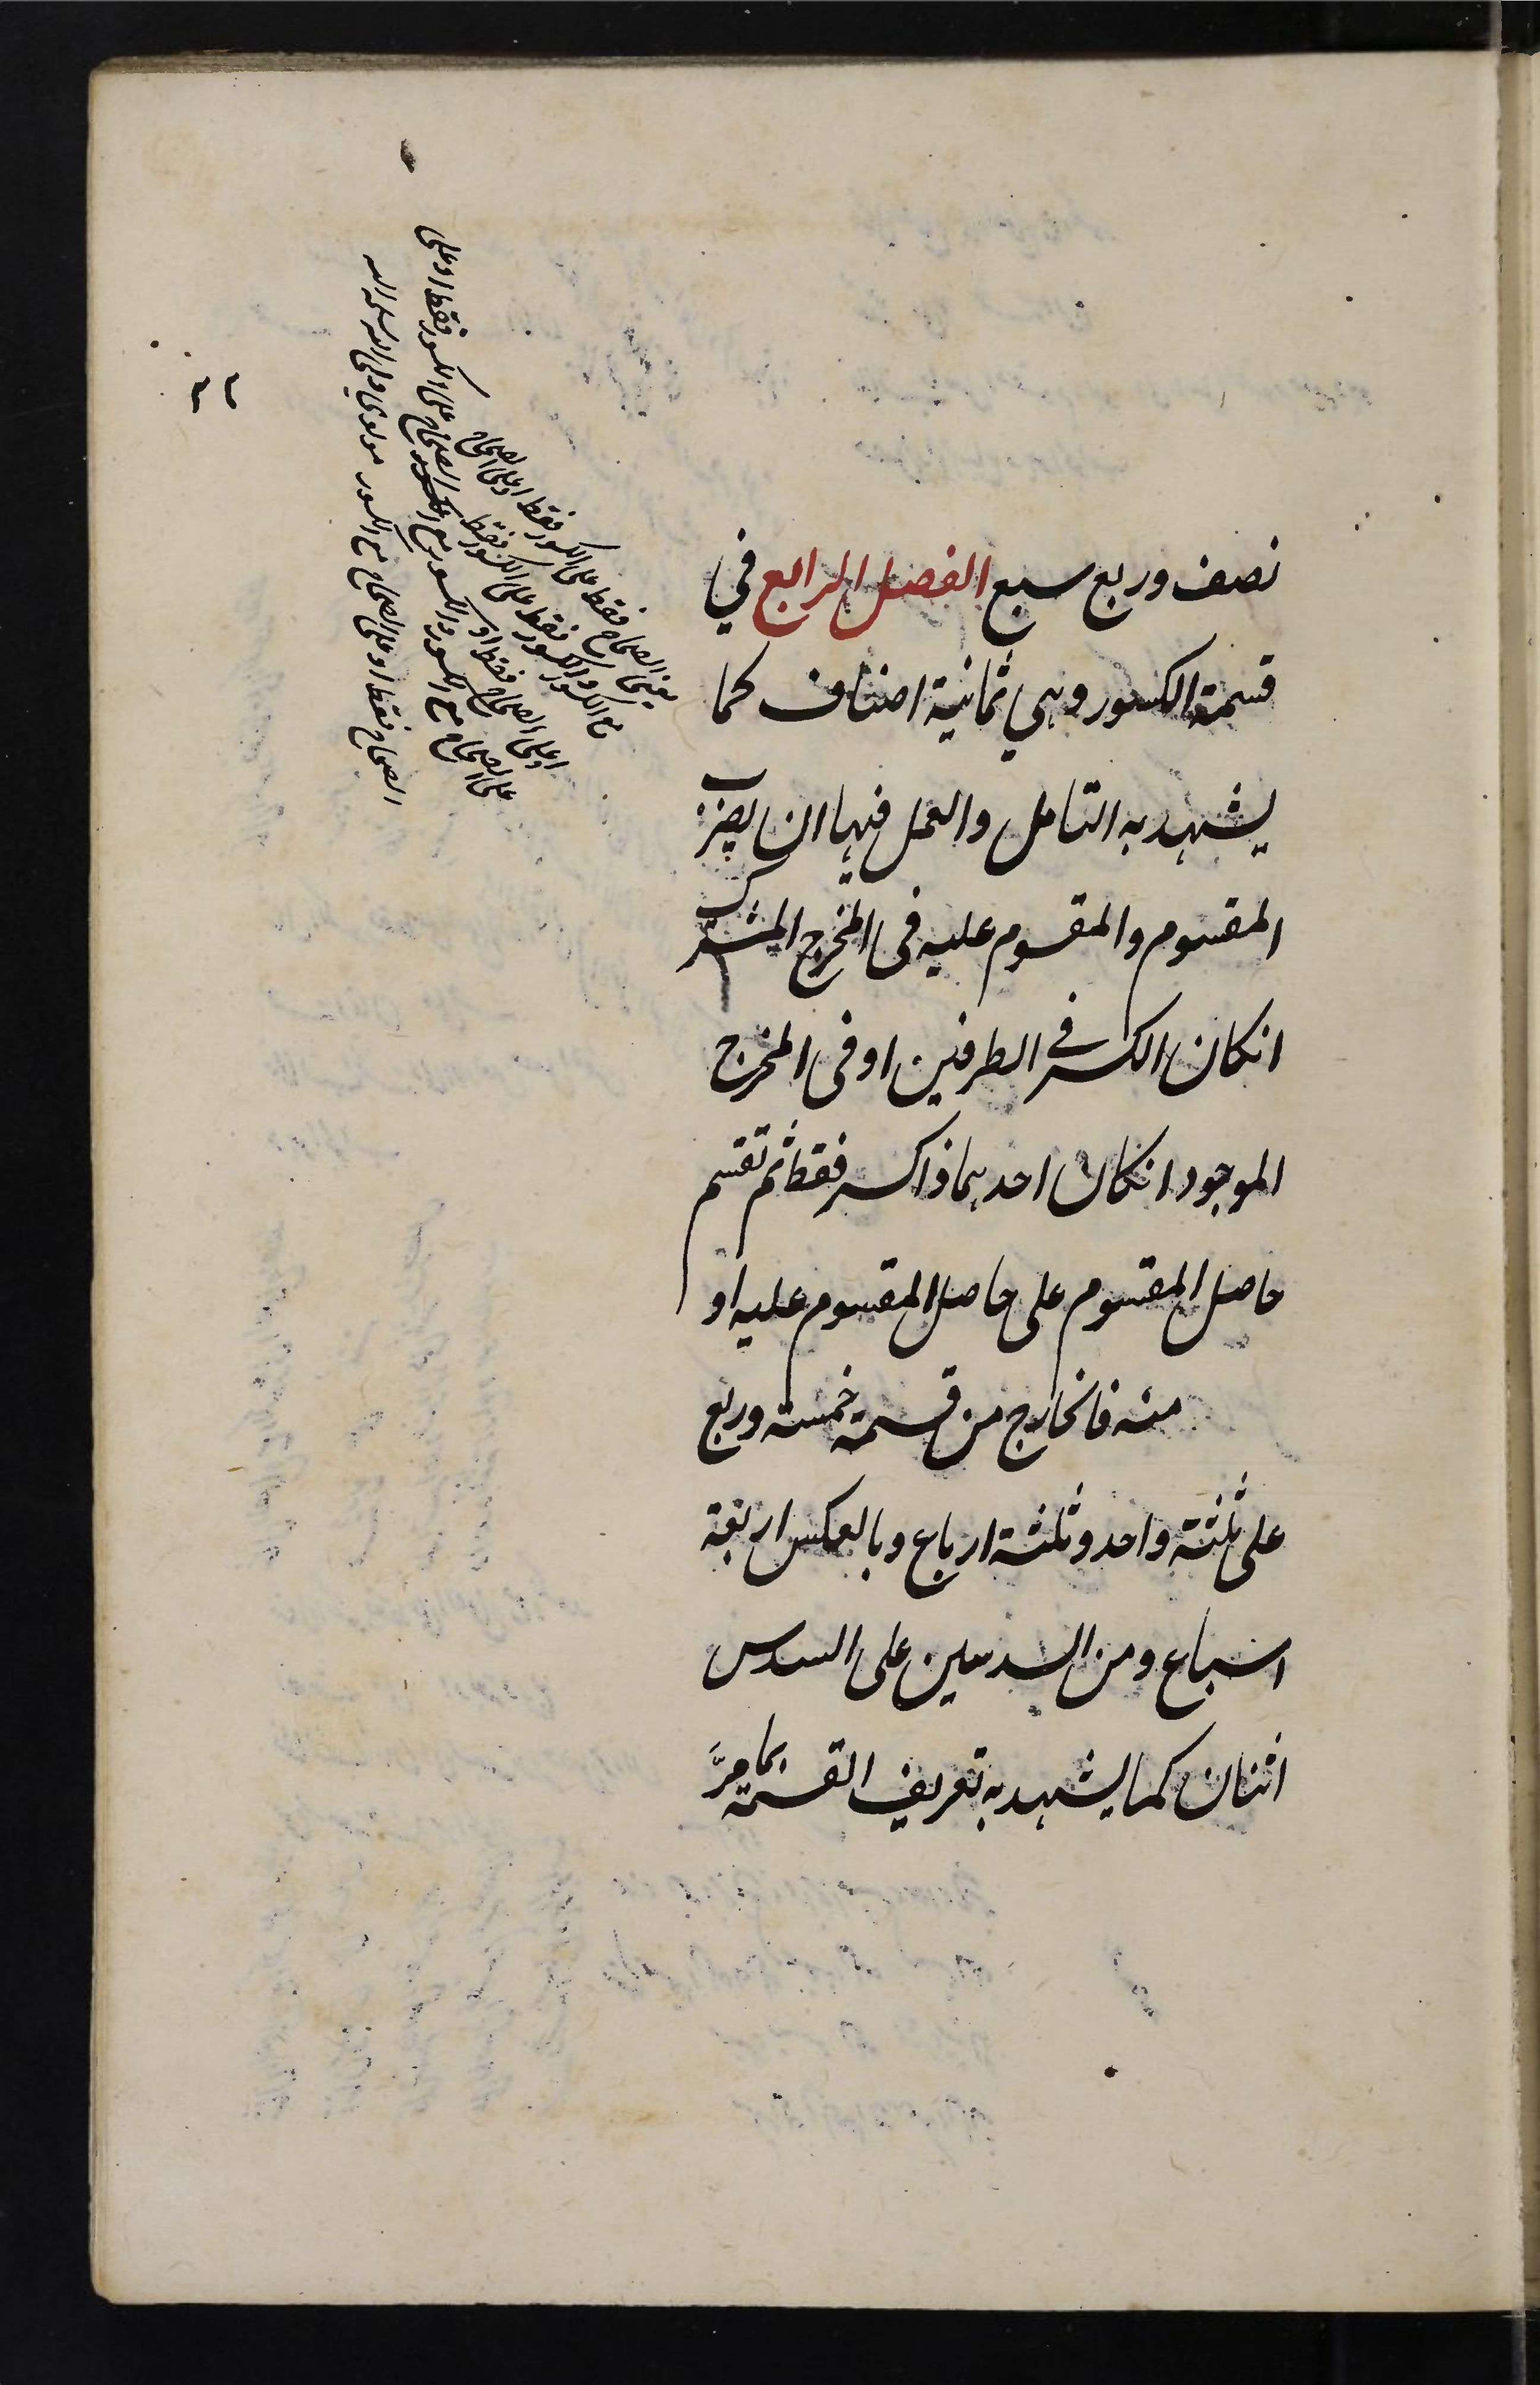 نصف وربع سبع الفصل الرابع في
قسمة الكسور وهي ثمانية اصناف كما
يشهد به التامل والعمل فيها ان يضرب
المقسوم والمقسوم عليه في المخرج المشترك
انكان الكسر في الطرفين او في المخرج
الموجود انكان احدهما ذا كسر فقط ثم تقسم
حاصل المقسوم على حاصل المقسوم عليه او
منه فالخارج من قسمة خمسة وربع
على ثلثة واحد وثلثة ارباع وبالعكس اربعة
اسباع ومن السدسين على السدس
اثنان كما يشهد به تعريف القسمة بما مرّ
الصحاح فقط على الكسور فقط او على الصحاح
مع الكسور والكسور فقط على الكسور فقط
او على الصحاح فقط او
على الصحاح مع الكسور والكسور مع الصحاح على الكسور فقط او على
الصحاح فقط او على الصحاح مع الكسور مولوي